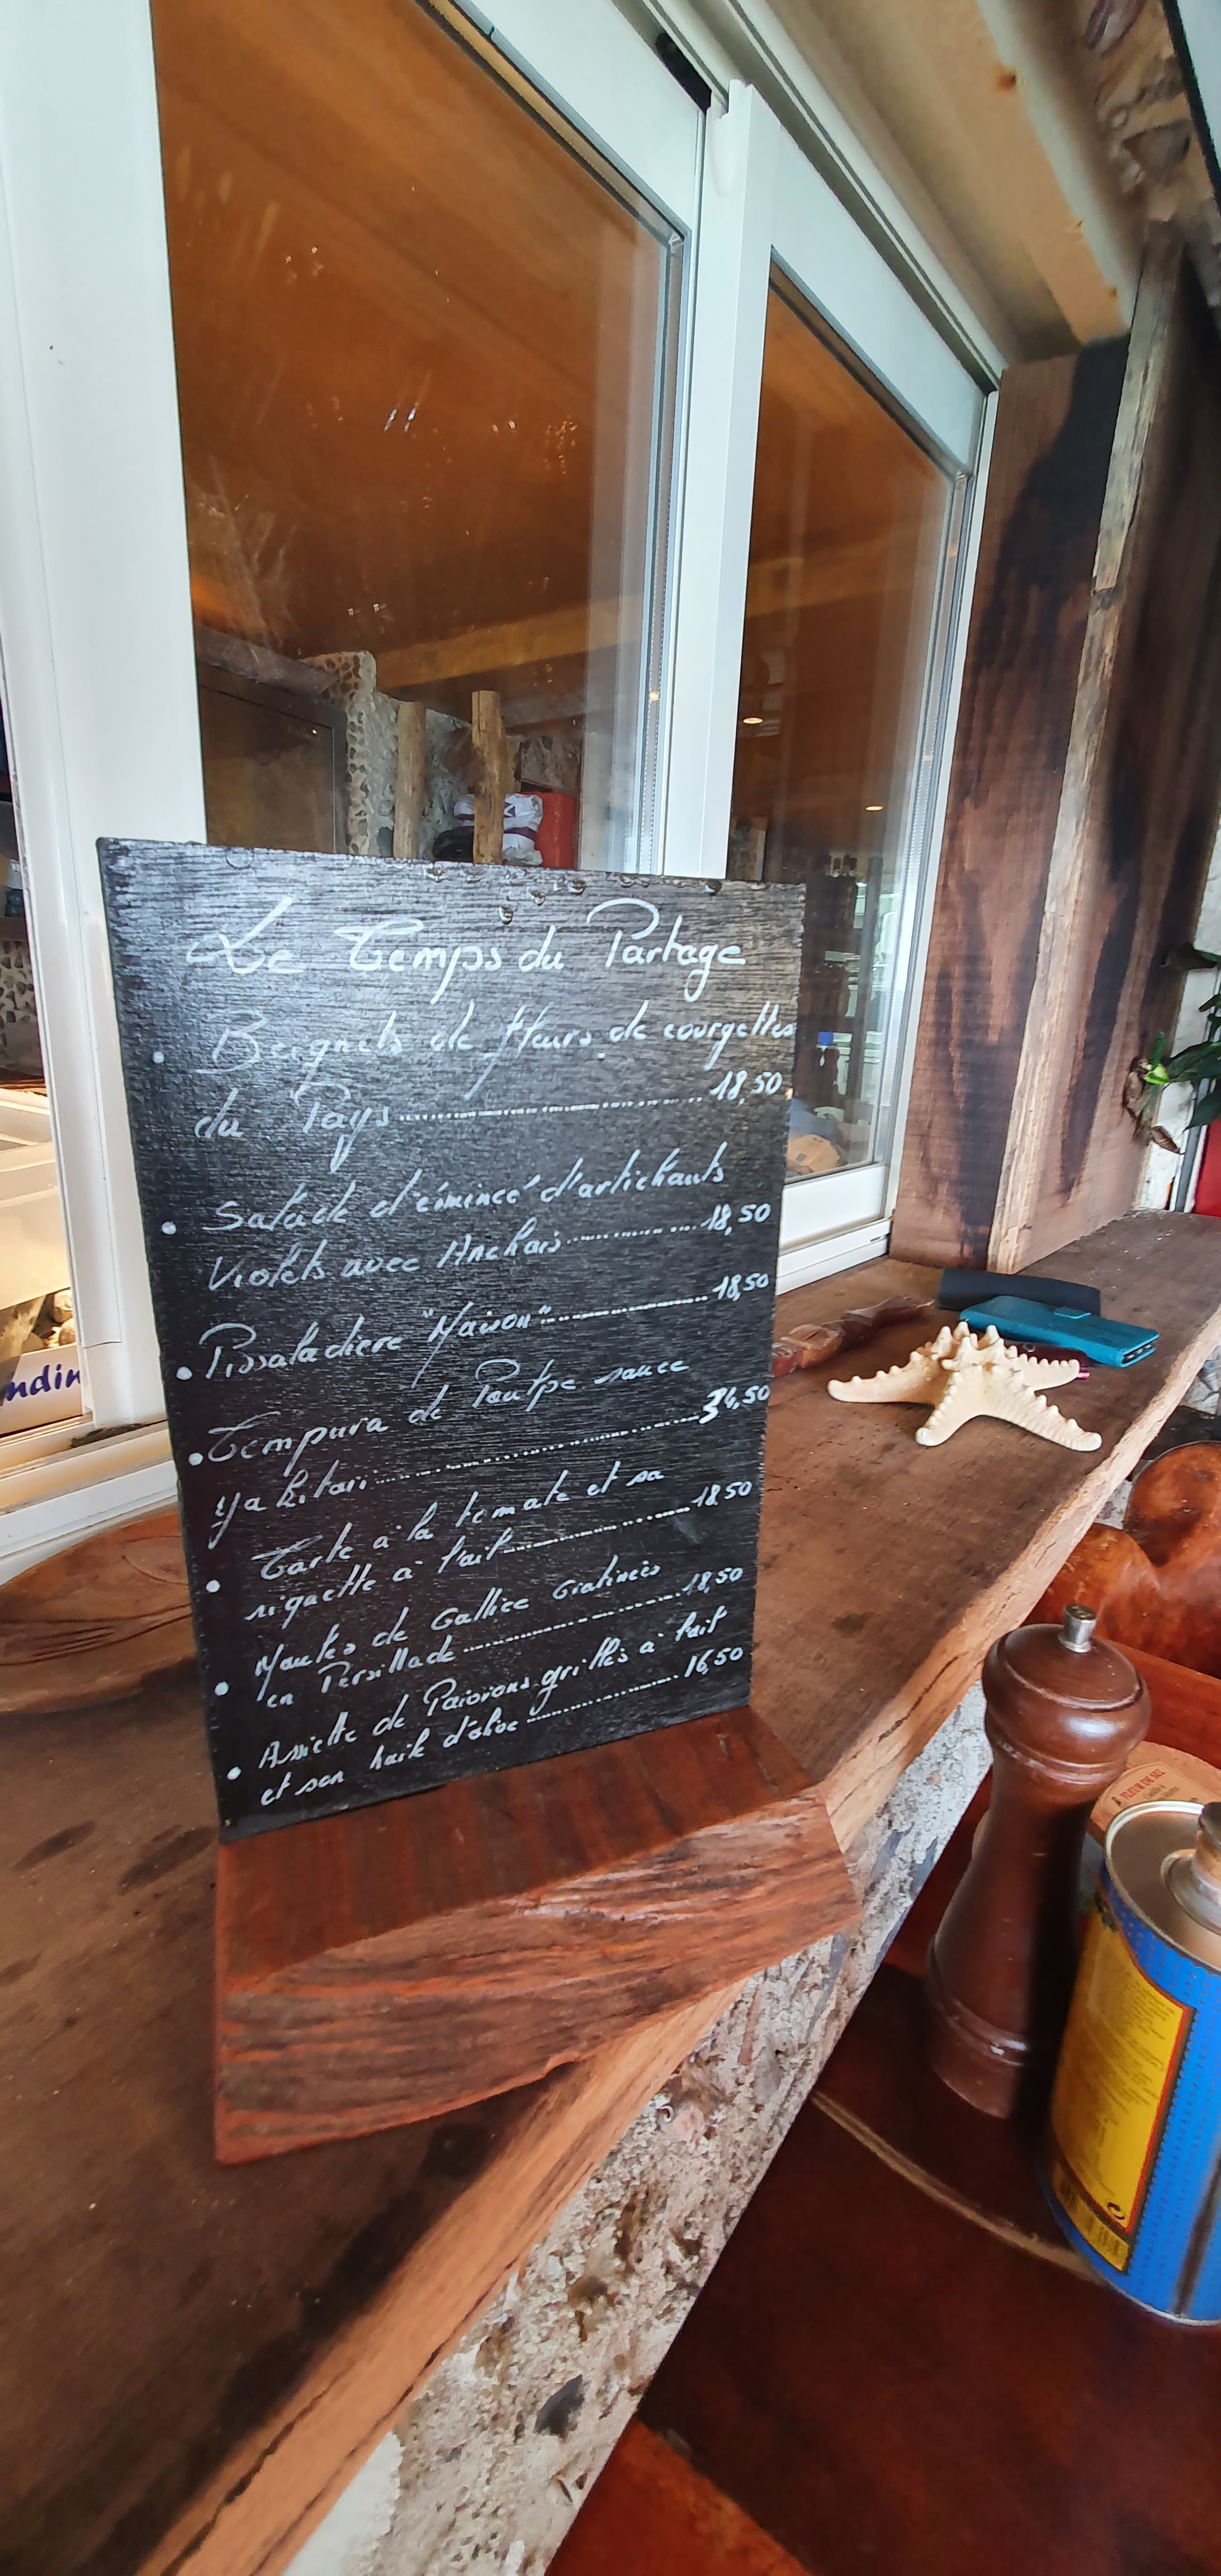 Le Temps du Partage
• Beignets de fleurs de courgettes
du Pays 18,50
• Salade d'émincé d'artichauts
Violets avec Anchois 18,50
• Pissaladière "Maison" 18,50
• Tempura de Poulpe sauce
Yakitori 34,50
• Tarte à la tomate et sa
riquette à l'ail 18.50
• Moules de Gallice Gratinées
en Persillade 18,50
• Assiette de Poivrons grillés à l'ail
et son huile d'olive 16,50
ndin
FLEUR DE SEL